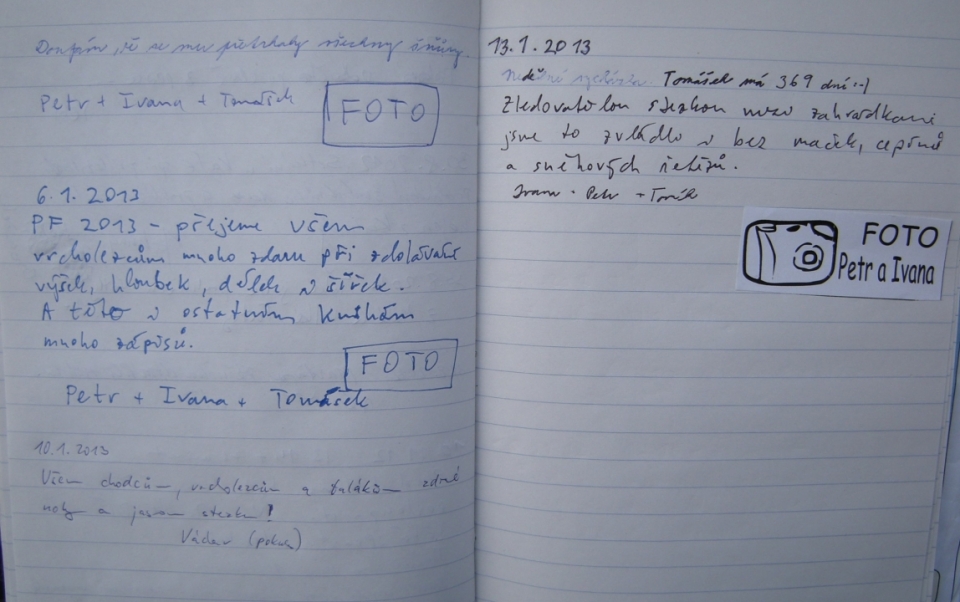 Doufám, že se mu přetrhaly všechny šňůry.
Petr + Ivana + Tomášek
FOTO
6.1.2013
PF 2013 - přejeme všem
vrcholezcům mnoho zdaru při zdolávání
výšek, hloubek, délek i šířek.
A této i ostatním knihám
mnoho zápisů.
FOTO
Petr + Ivana + Tomášek
10.1.2013
Všem chodcům, vrcholezcům a tulákům zdravé
nohy a jasnou stezku!
Václav
13.1.2013
Nedělní Tomášek má 369 dní :-)
Zledovatělou stezkou mezi zahrádkami
jsme to zvládlo i bez maček, cepínů
a sněhových řetězů.
Ivana + Petr + Tomík
FOTO
Petr a Ivana